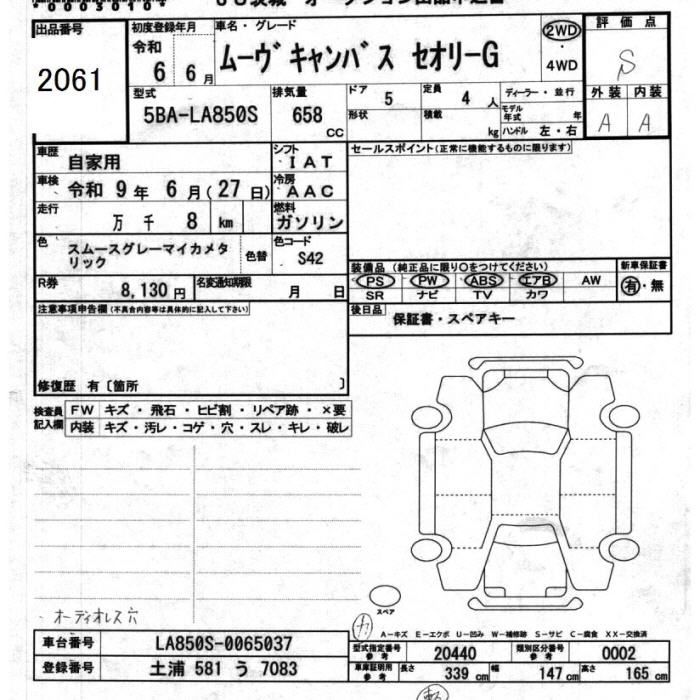 出品番号 初度登録年月 車名・グレード 評価点
2061 令和 6 6月 ムーヴ キャンバス セオリーG 2WD・4WD S
型式 排気量 ドア 定員 ディーラー・並行 外装 内装
5BA-LA850S 658 CC 5 4 人 A A
形状 積載 kg モデル年式 年
ハンドル 左・右
車歴 自家用 シフト IAT セールスポイント(正常に機能するものに限ります)
車検 令和 9 年 6 月(27 日) 冷房 AAC
走行 万 千 8 km 燃料 ガソリン
色 スムースグレーマイカメタリック 色替 色コード S42
装備品 (純正品に限り○をつけてください) 新車保証書
PS PW ABS エアB AW 有・無
SR ナビ TV カワ
R券 8,130 円 名変通知期限 月 日
後日品 保証書・スペアキー
注意事項申告欄(不具合内容等は具体的に記入して下さい)
修復歴 有〔箇所 〕
検査員記入欄 FW キズ・飛石・ヒビ割・リペア跡・×要
内装 キズ・汚レ・コゲ・穴・スレ・キレ・破レ
スペア
オーディオレス穴
A-キズ E-エクボ U-凹み W-補修跡 S-サビ C-腐食 XX-交換済
車台番号 LA850S-0065037 型式指定番号 参考 20440 類別区分番号 参考 0002
登録番号 土浦 581 う 7083 車庫証明用 参考 長さ 339 cm 幅 147 cm 高さ 165 cm